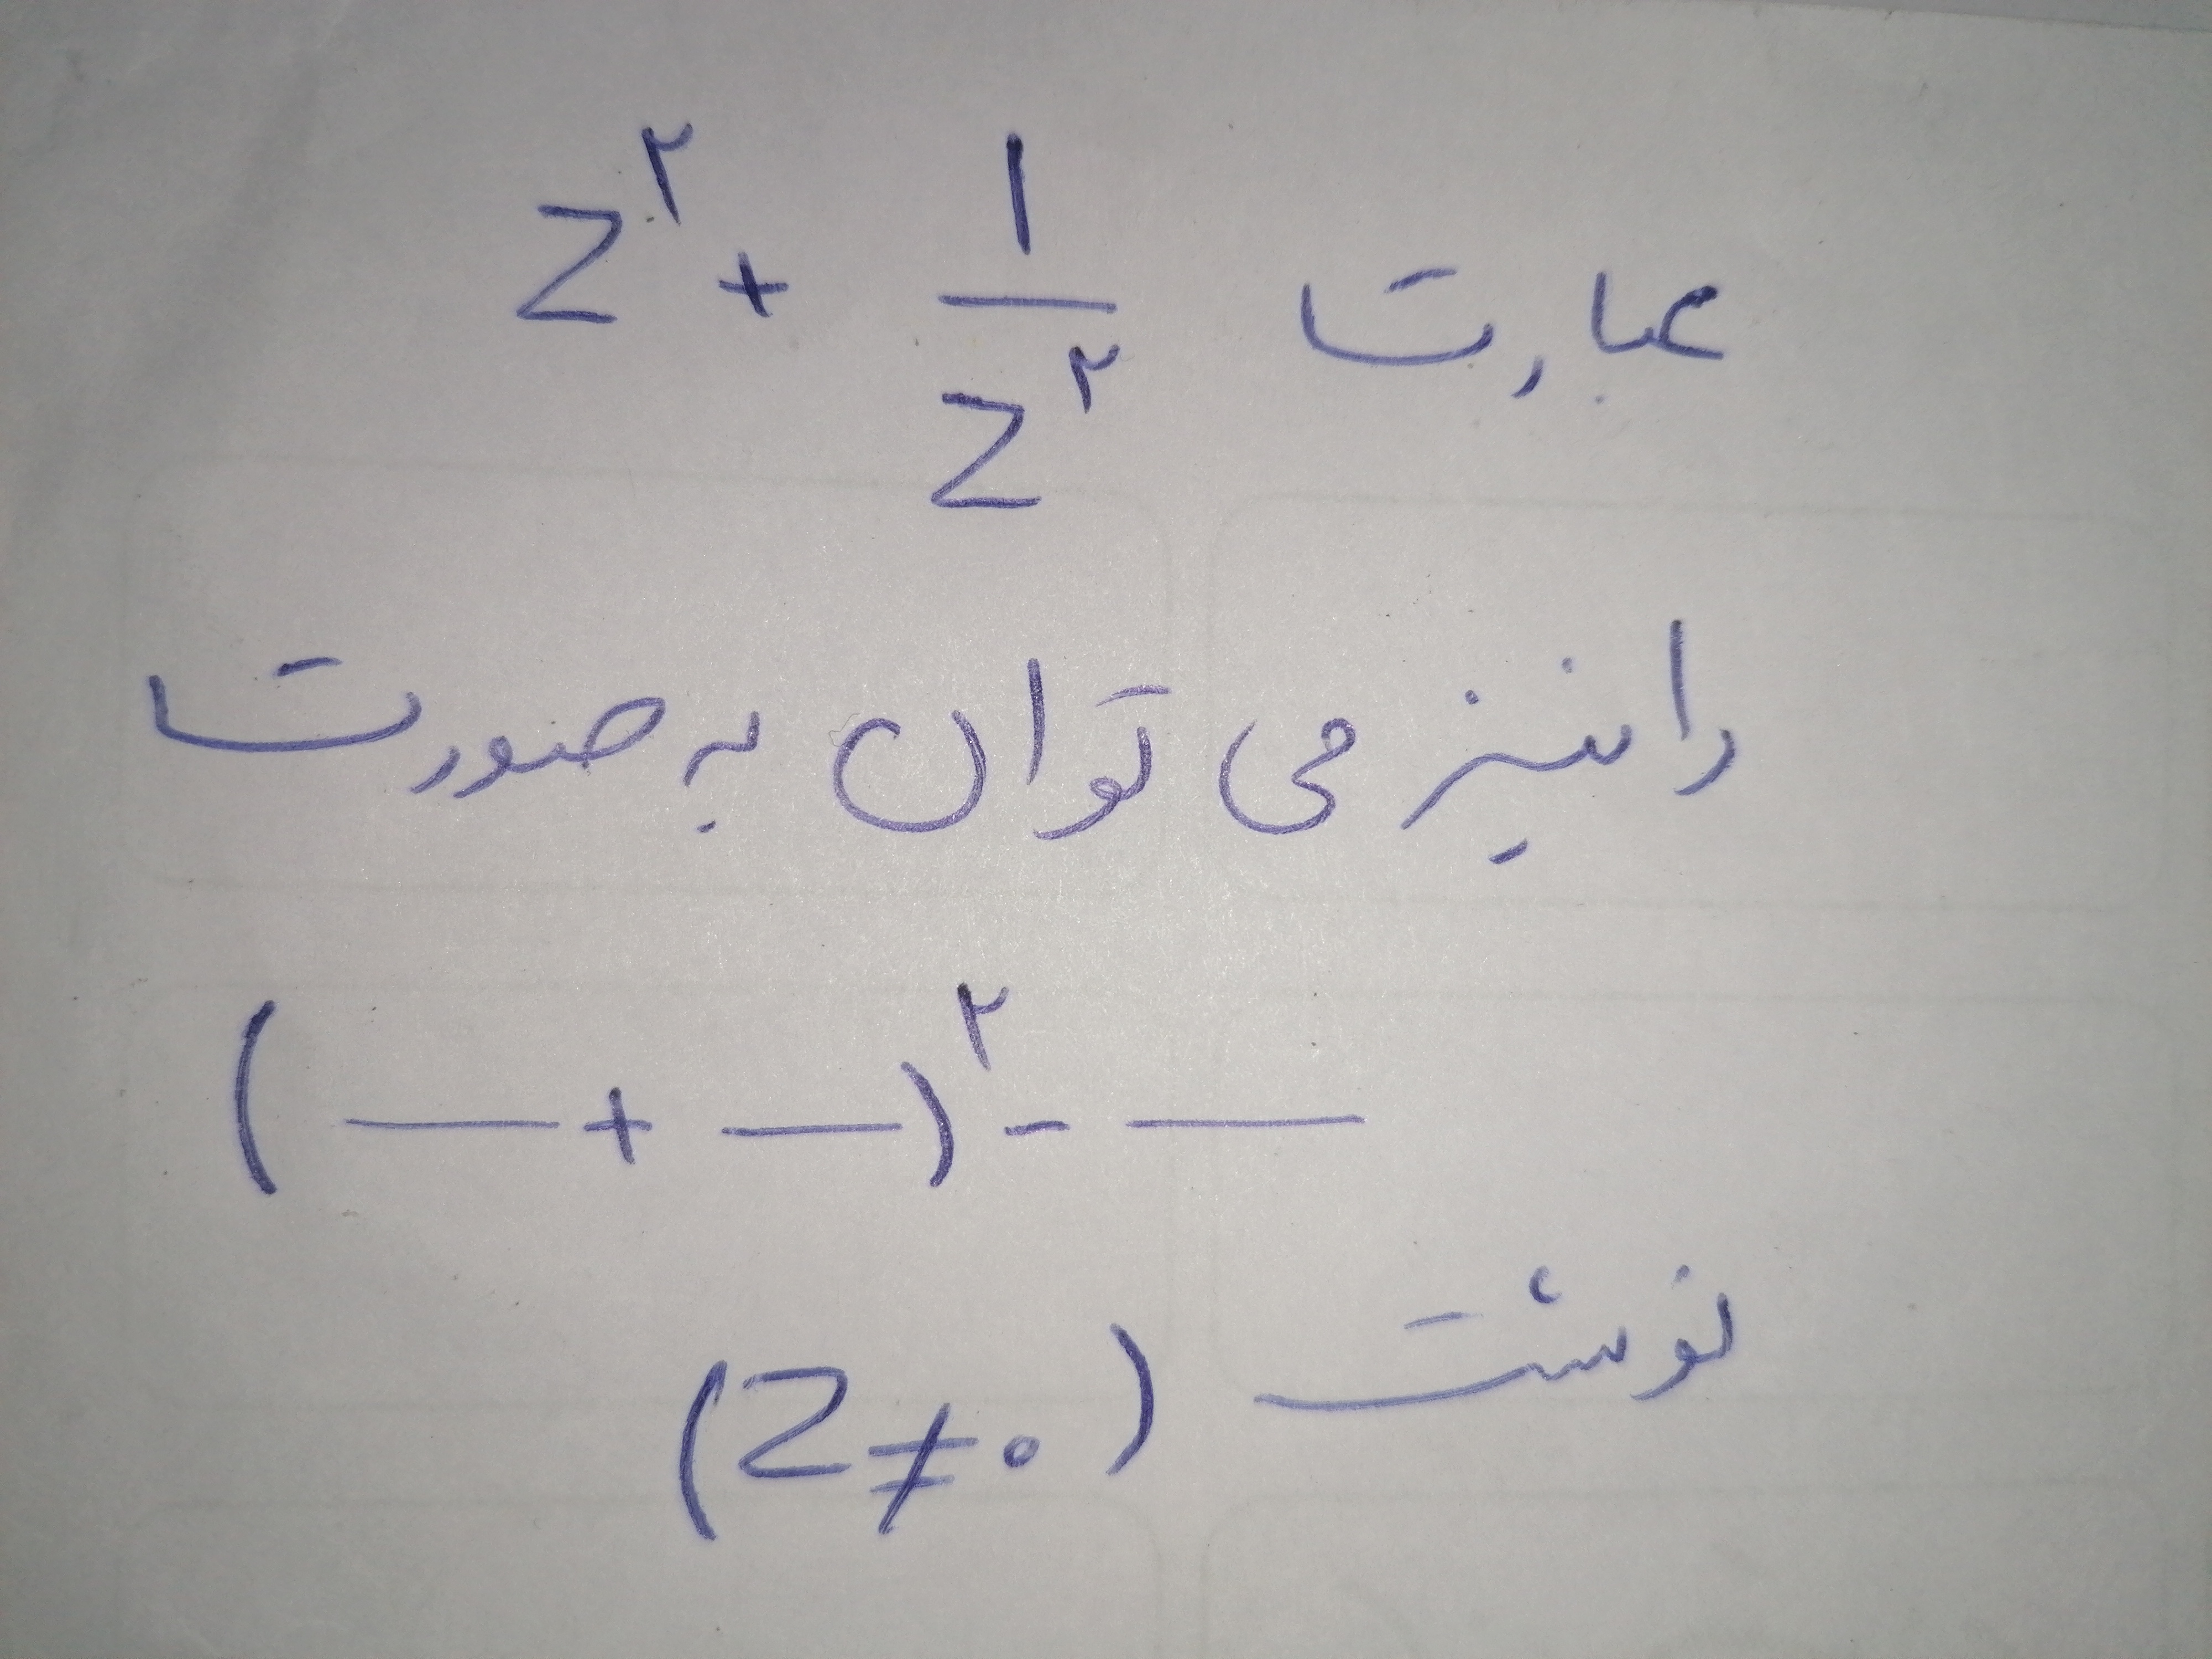 عبارت z^۲ + ۱/z^۲
را نیز می توان به صورت
( — + — )^۲ - —
نوشت (z ≠ ۰)